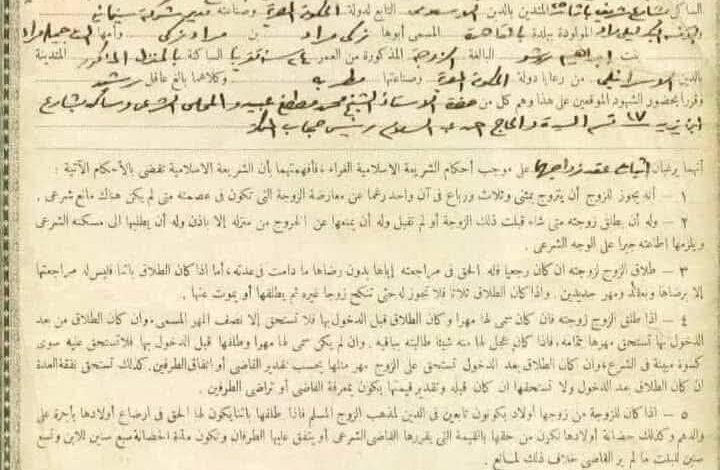 الساكن بشارع شريف باشا المتدين بالدين الموسوى التابع لدولة الحكومة المصرية وصناعته مدير شركة سينمائى
المولودة ببلدة بالقاهرة المسمى أبوها زكى مراد بن مراد زكى وأمها
بنت إبراهيم رشو البالغة الزوجة المذكورة من العمر ٢٤ سنة تقريبا الساكنة بالمنزل المذكور المتدينة
بالدين الاسرائيلى من رعايا دولة الحكومة المصرية وصناعتها مطربه وكلاهما بالغ عاقل رشيد
وقررا بحضور الشهود الموقعين على هذا وهم كل من حضرة الأستاذ الشيخ محمد مصطفى المحامى الشرعى وساكن بشارع
١٧ قسم السيدة والحاج عبد السلام رئيس حجاب
أنهما يرغبان اثبات عقد زواجهما على موجب أحكام الشريعة الاسلامية الغراء، فأفهمتهما بأن الشريعة الاسلامية تقضى بالأحكام الآتية :
١ – أنه يجوز للزوج أن يتزوج بمثنى وثلاث ورباع فى آن واحد رغما عن معارضة الزوجة التى تكون فى عصمته متى لم يكن هناك مانع شرعى .
٢ – وله أن يطلق زوجته متى شاء قبلت ذلك الزوجة أو لم تقبل وله أن يمنعها عن الخروج من منزله إلا باذن وله أن يطلبها الى مسكنه الشرعى
ويلزمها اطاعته جبرا على الوجه الشرعى .
٣ – طلاق الزوج لزوجته ان كان رجعيا فله الحق فى مراجعته إياها بدون رضاها ما دامت فى عدته، أما اذا كان الطلاق بائنا فليس له مراجعتها
إلا برضاها وبعقد ومهر جديدين . واذا كان الطلاق ثلاثا فلا تجوز له حتى تنكح زوجا غيره ثم يطلقها أو يموت عنها .
٤ – اذا طلق الزوج زوجته فان كان سمى لها مهرا وكان الطلاق قبل الدخول بها فلا تستحق إلا نصف المهر المسمى، وان كان الطلاق من بعد
الدخول بها تستحق مهرها بتمامه، فاذا كان عجل لها منه شيئا طالبته بباقيه . وان لم يكن سمى لها مهرا وطلقها قبل الدخول بها فلا تستحق عليه سوى
كسوة مبينة فى الشرع، وان كان الطلاق بعد الدخول تستحق على الزوج مهر مثلها بحسب تقدير القاضى أو اتفاق الطرفين. كذلك تستحق نفقة العدة
ان كان الطلاق بعد الدخول ولا تستحقها ان كان قبله وتقدير قيمتها يكون بمعرفة القاضى أو تراضى الطرفين .
٥ – اذا كان للزوجة من زوجها أولاد يكونون تابعين فى الدين لمذهب الزوج المسلم فاذا طلقها بائنا يكون لها الحق فى ارضاع أولادها بأجرة على
والدهم وكذلك حضانة أولادها تكون من حقها بالقيمة التى يقررها القاضى الشرعى أو يتفق عليها الطرفان وتكون مدة الحضانة سبع سنين للابن وتسع
سنين للبنت ما لم ير القاضى خلاف ذلك لمسائغ .